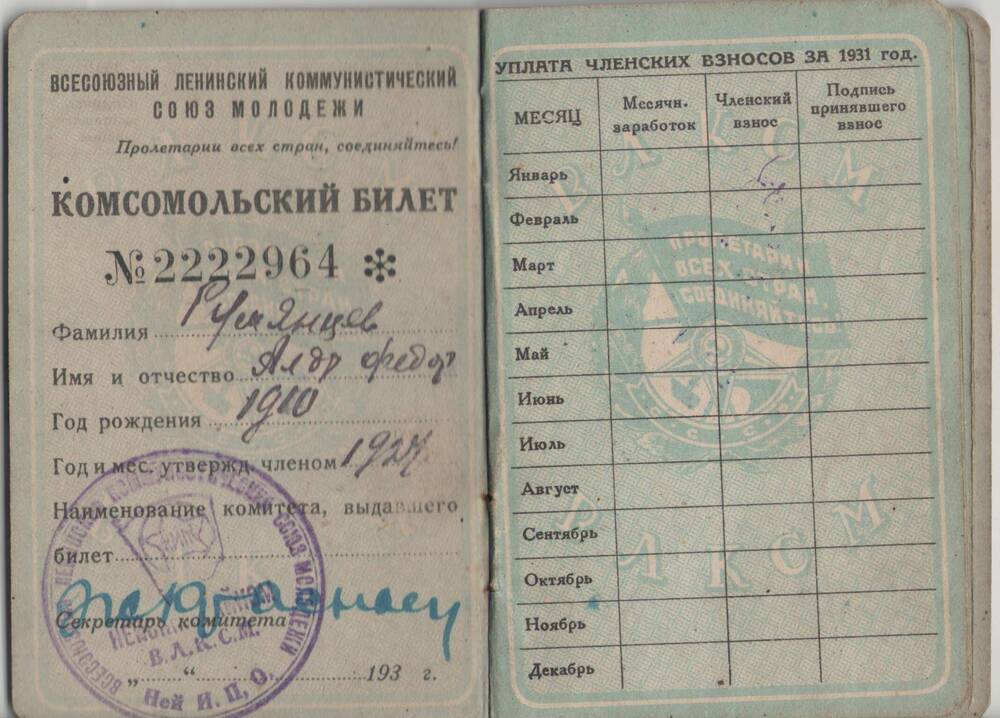 ВСЕСОЮЗНЫЙ ЛЕНИНСКИЙ КОММУНИСТИЧЕСКИЙ
СОЮЗ МОЛОДЕЖИ
Пролетарии всех стран, соединяйтесь!
КОМСОМОЛЬСКИЙ БИЛЕТ
№ 2222964 *
Фамилия Румянцев
Имя и отчество Алдр Федор
Год рождения 1910
Год и мес. утвержд. членом 1927
Наименование комитета, выдавшего
билет
Секретарь комитета
„ “ 193 г.
В.Л.К.С.М.
Ней И.П.О.
УПЛАТА ЧЛЕНСКИХ ВЗНОСОВ ЗА 1931 год.
МЕСЯЦ Месячн. заработок Членский взнос Подпись принявшего взнос
Январь
Февраль
Март
Апрель
Май
Июнь
Июль
Август
Сентябрь
Октябрь
Ноябрь
Декабрь
ВЛКСМ
ПРОЛЕТАРИИ
ВСЕХ СТРАН,
СОЕДИНЯЙТЕСЬ
ВЛКСМ